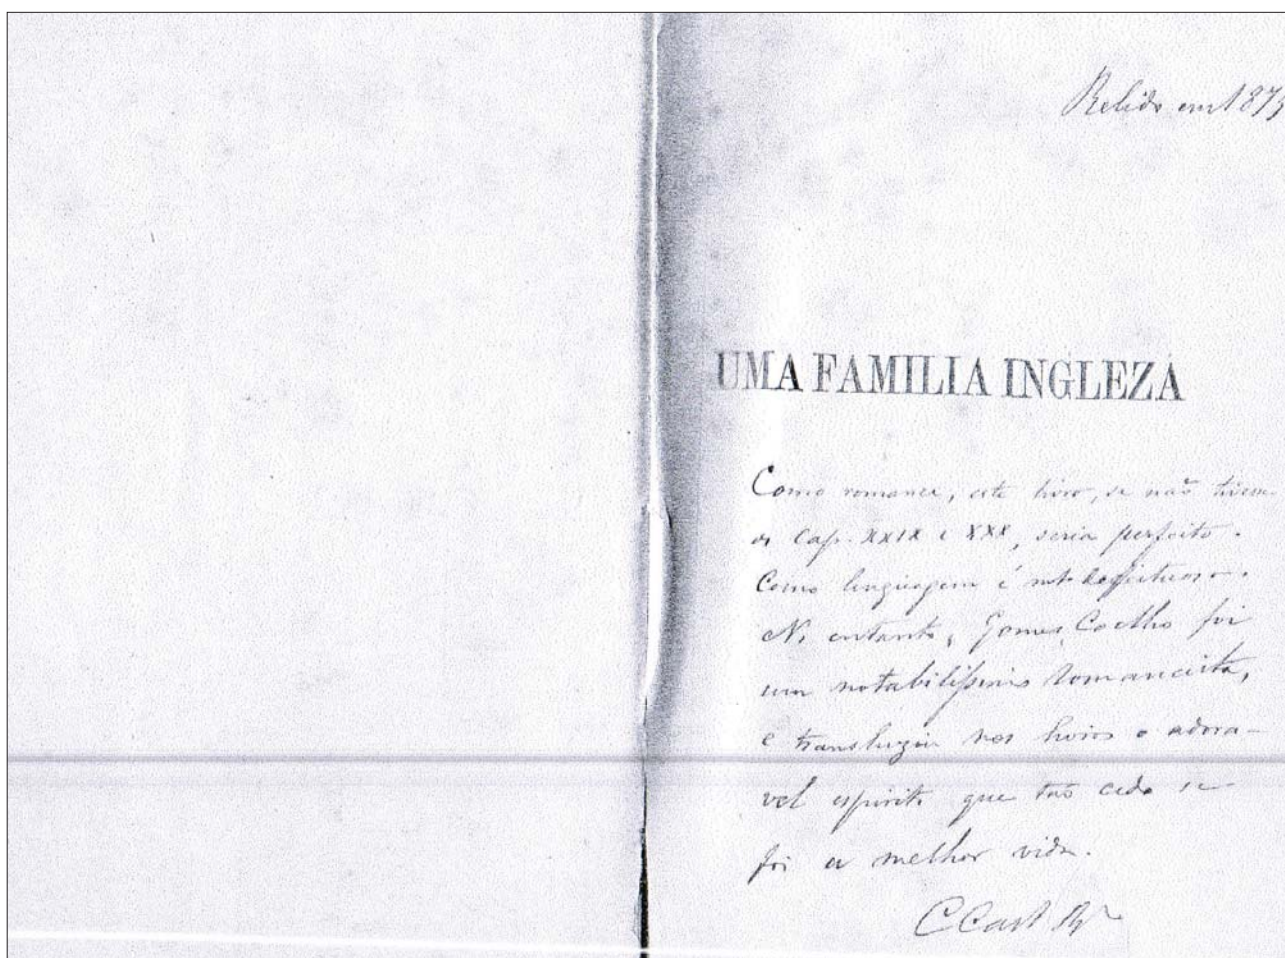 Relido em 187
UMA FAMILIA INGLEZA
Como romance, este livro, se não tivesse
os Cap. XXIX e XXX, seria perfeito.
Como linguagem é mto defeituoso.
No entanto, Gomes Coelho foi
um notabilissimo romancista,
e transluziu nos livros o adora-
vel espirito que tão cedo se
foi a melhor vida.
C Cast Br